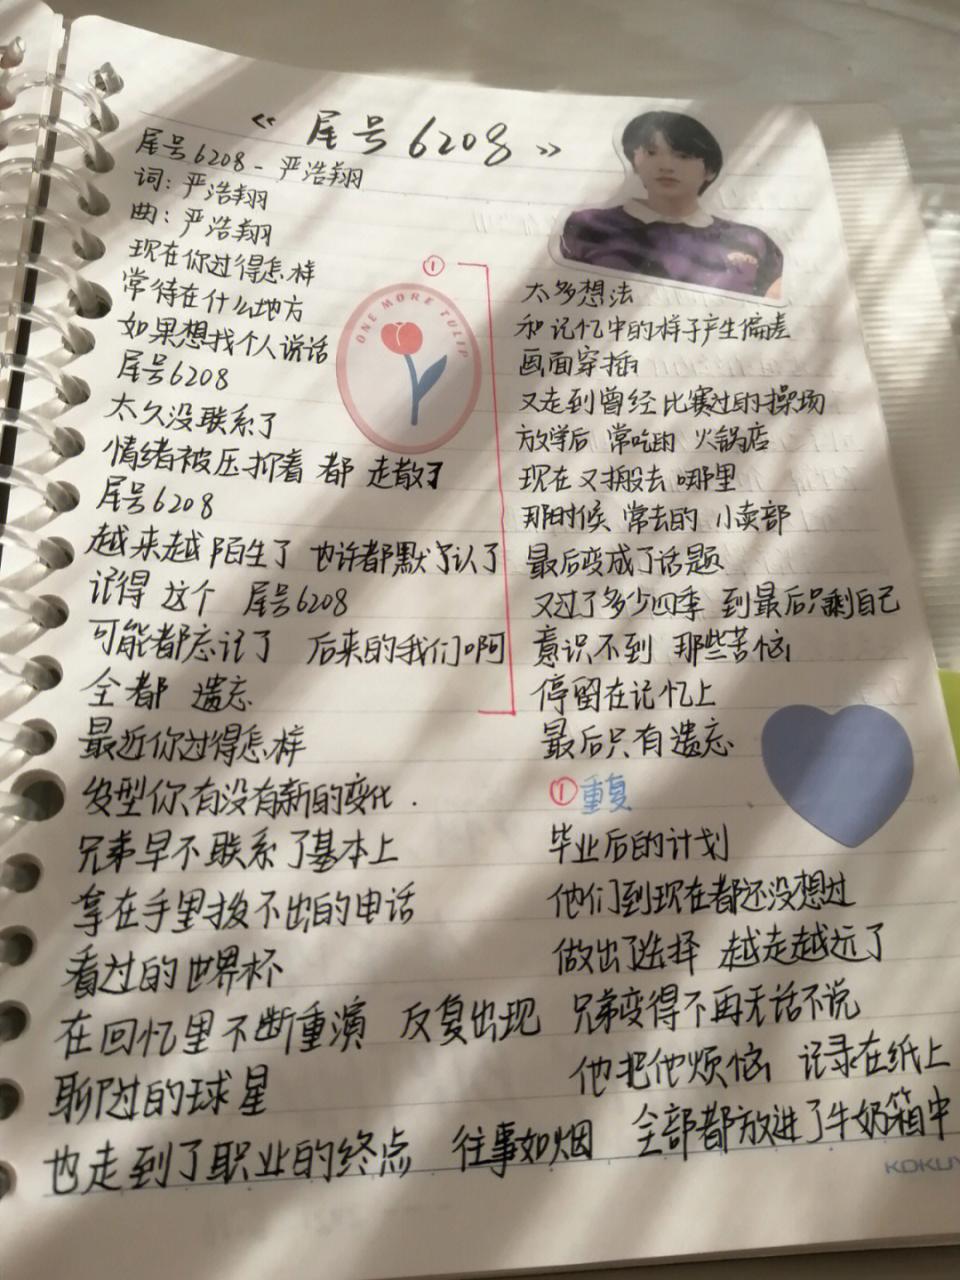 《尾号6208》
尾号6208 - 严浩翔
词：严浩翔
曲：严浩翔
现在你过得怎么样
常待在什么地方
如果想找个人说话
尾号6208
太久没联系了
情绪被压抑着 都 走散了
尾号6208
越来越陌生了 也许都默认了
记得 这个 尾号6208
可能都忘记了 后来的我们啊
全都 遗忘
最近你过得怎样
发型你有没有新的变化.
兄弟早不联系了基本上
拿在手里拨不出的电话
看过的世界杯
在回忆里不断重演 反复出现
聊过的球星
也走到了职业的终点 往事如烟
①
ONE MORE TULIP
太多想法
和记忆中的样子产生偏差
画面穿插
又走到曾经比赛过的操场
放学后 常吃的 火锅店
现在又搬去 哪里
那时候 常去的 小卖部
最后变成了话题
又过了多少四季 到最后只剩自己
意识不到 那些苦恼
停留在记忆上
最后只有遗忘
①重复
毕业后的计划
他们到现在都还没想过
做出了选择 越走越远了
兄弟变得不再无话不说
他把他烦恼 记录在纸上
全部都放进了牛奶箱中
KOKUY